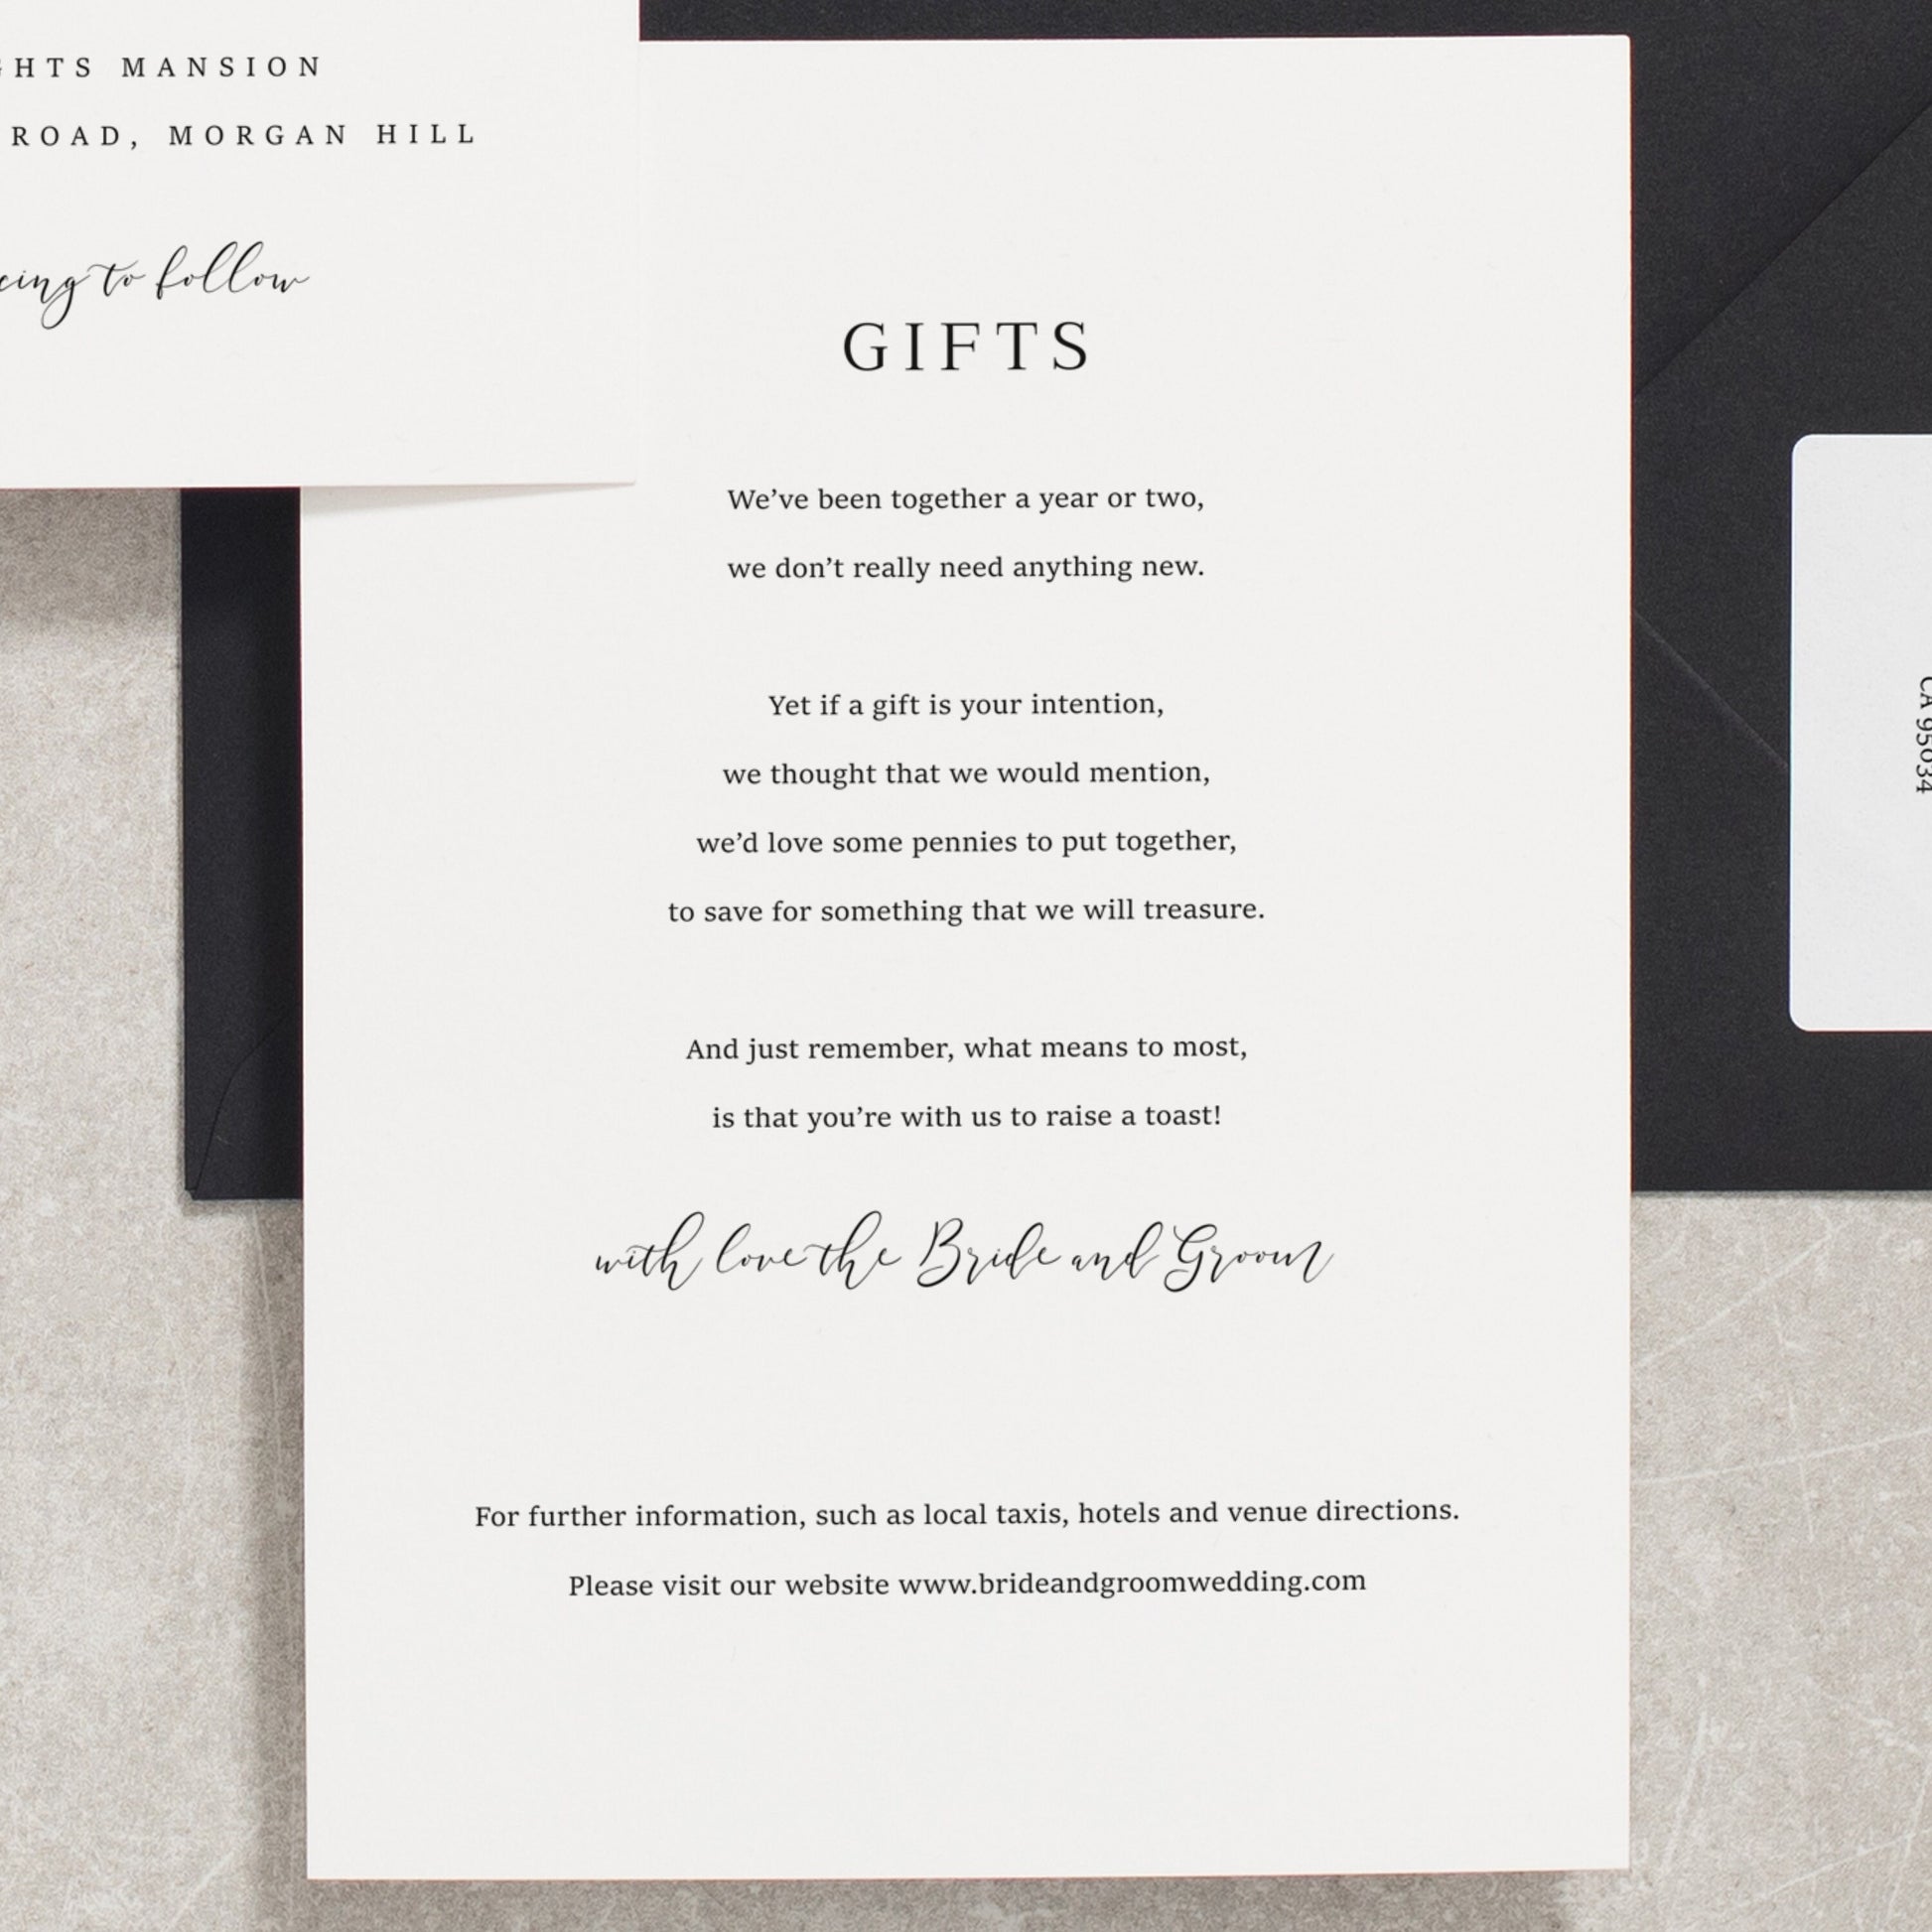 MANSION
ROAD, MORGAN HILL
to follow
GIFTS
We’ve been together a year or two,
we don’t really need anything new.
Yet if a gift is your intention,
we thought that we would mention,
we’d love some pennies to put together,
to save for something that we will treasure.
And just remember, what means to most,
is that you’re with us to raise a toast!
with love the Bride and Groom
For further information, such as local taxis, hotels and venue directions.
Please visit our website www.brideandgroomwedding.com
CA 95034